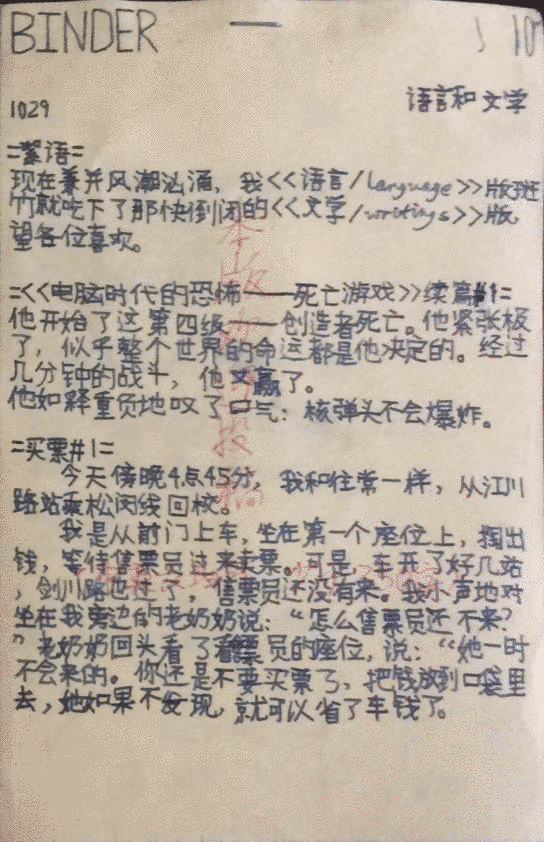 BINDER 一 10
1029 语言和文学
=絮语=
现在兼并风潮汹涌，我<<语言/language>>版班
竹就吃下了那快倒闭的<<文学/writings>>版
望各位喜欢。
=<<电脑时代的恐怖——死亡游戏>>续篇#1=
他开始了这第四级——创造者死亡。他紧张极
了，似乎整个世界的命运都是他决定的。经过
几分钟的战斗，他又赢了。
他如释重负地叹了口气：核弹头不会爆炸。
=买票#1=
今天傍晚4点45分，我和往常一样，从江川
路站乘松闵线回校。
我是从前门上车，坐在第一个座位上，掏出
钱，等待售票员过来卖票。可是，车开了好几站
，剑川路也过了，售票员还没有来。我小声地对
坐在我旁边的老奶奶说：“怎么售票员还不来？
”老奶奶回头看了看售票员的座位，说：“她一时
不会来的。你还是不要买票了，把钱放到口袋里
去，她如果不发现，就可以省了车钱了。